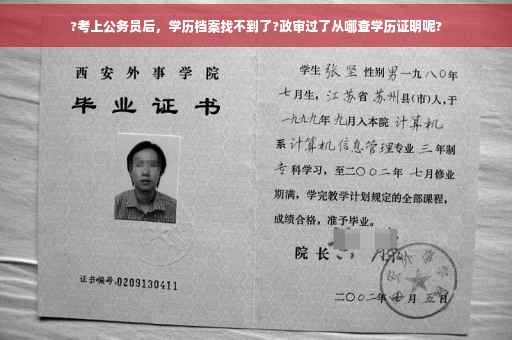 ?考上公务员后，学历档案找不到了?政审过了从哪查学历证明呢?
西安外事学院
毕业证书
证书编号:0209130411
学生 张坚 性别 男 一九八〇年
七月生，江苏省 苏州 县(市)人，于
一九九九年 九月入本院 计算机
系 计算机信息管理 专业 三 年制
专 科学习，至二〇〇二年 七月修业
期满，学完教学计划规定的全部课程，
成绩合格，准予毕业。
院长
二〇〇二年 月 五日